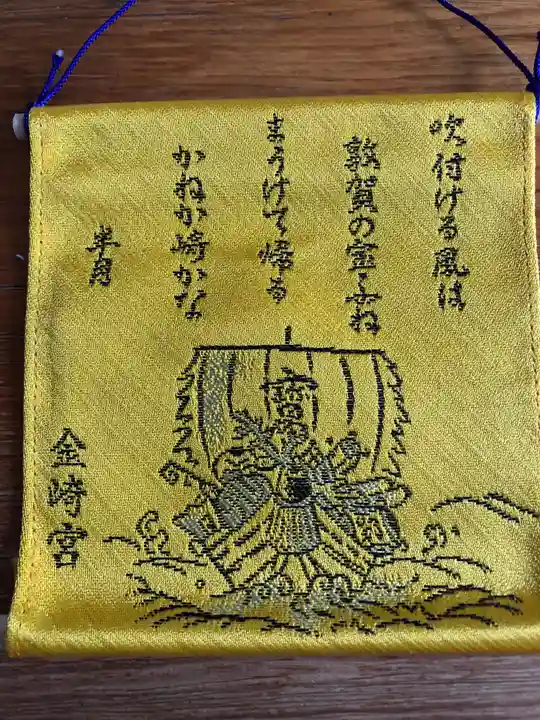 吹付ける風は
敦賀の宝ふね
まうけて帰る
かねか崎かな
半月
金崎宮
寳